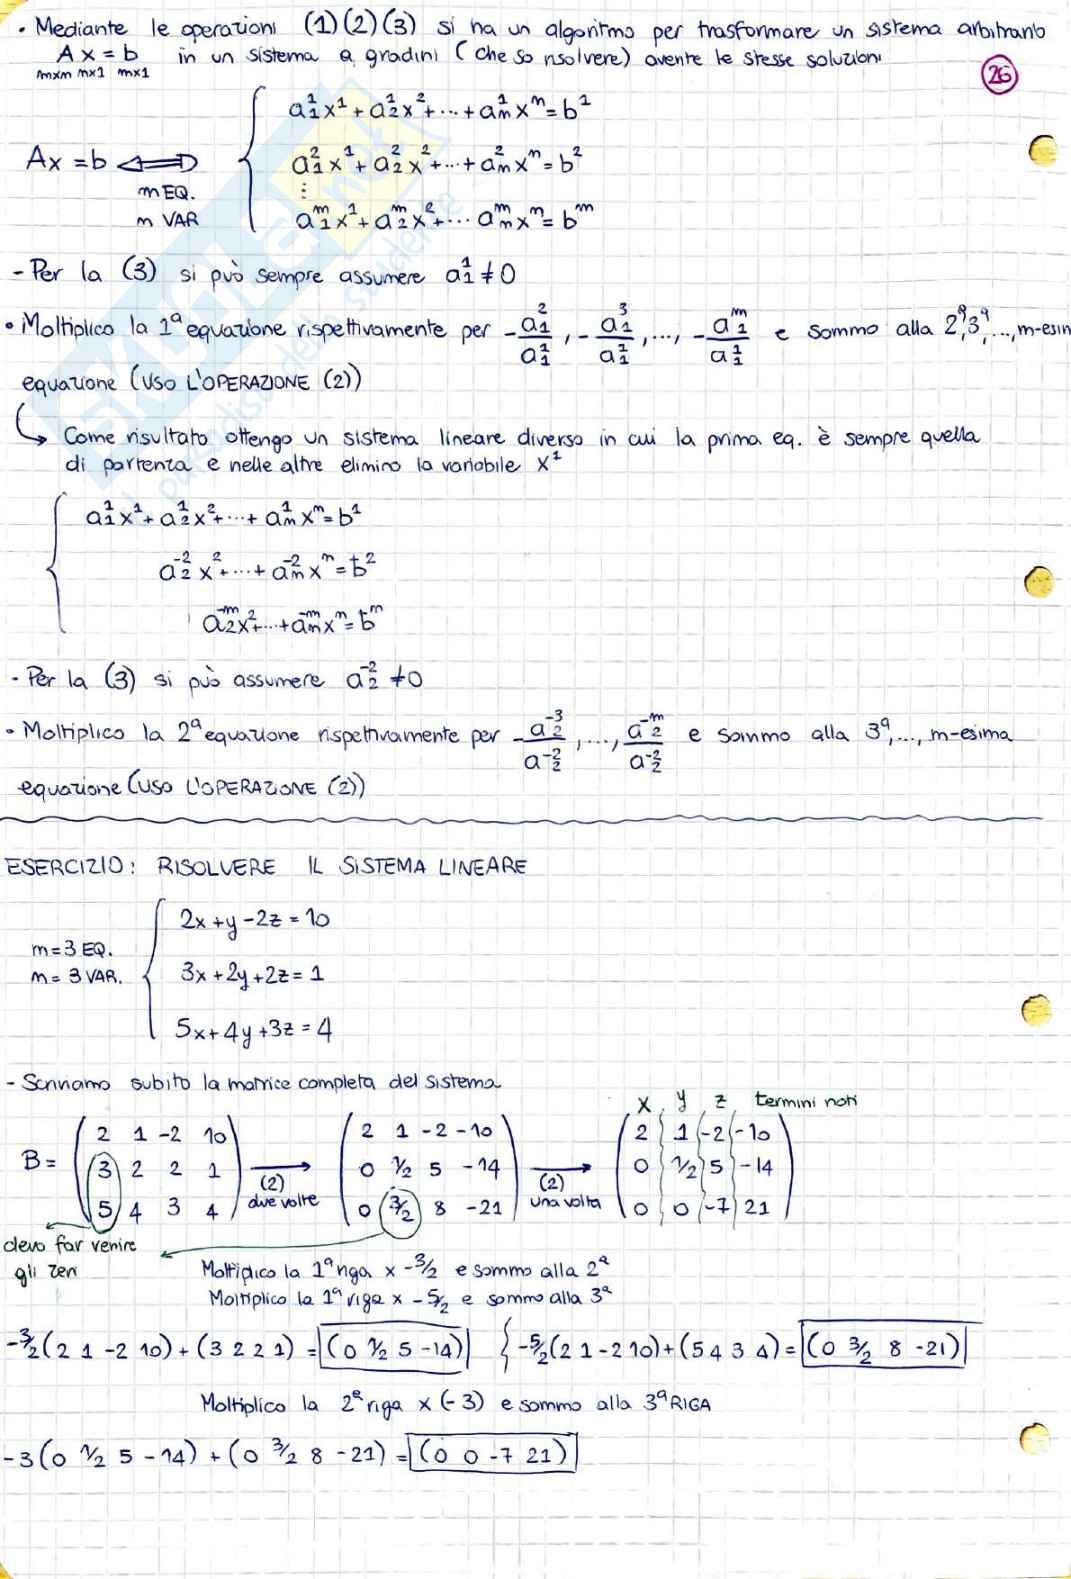 • Mediante le operazioni (1)(2)(3) si ha un algoritmo per trasformare un sistema arbitrario
A x = b in un sistema a gradini (che so risolvere) avente le stesse soluzioni
mxm mx1 mx1
26
a¹₁x¹ + a¹₂x² + ... + a¹ₙxⁿ = b¹
Ax = b ⟺ a²₁x¹ + a²₂x² + ... + a²ₙxⁿ = b²
m EQ.
⋮
m VAR aᵐ₁x¹ + aᵐ₂x² + ... aᵐₙxⁿ = bᵐ
- Per la (3) si può sempre assumere a¹₁ ≠ 0
• Moltiplico la 1ª equazione rispettivamente per -a²₁/a¹₁, -a³₁/a¹₁, ..., -aᵐ₁/a¹₁ e sommo alla 2ª, 3ª, ..., m-esim
equazione (USO L'OPERAZIONE (2))
↳ Come risultato ottengo un sistema lineare diverso in cui la prima eq. è sempre quella
di partenza e nelle altre elimino la variabile x¹
a¹₁x¹ + a¹₂x² + ... + a¹ₙxⁿ = b¹
a⁻²₂x² + ... + a⁻²ₙxⁿ = b̄²
a⁻ᵐ₂x² + ... + a⁻ᵐₙxⁿ = b̄ᵐ
- Per la (3) si può assumere a⁻²₂ ≠ 0
• Moltiplico la 2ª equazione rispettivamente per -a⁻³₂/a⁻²₂, ..., a⁻ᵐ₂/a⁻²₂ e sommo alla 3ª, ..., m-esima
equazione (USO L'OPERAZIONE (2))
ESERCIZIO: RISOLVERE IL SISTEMA LINEARE
2x + y - 2z = 10
m = 3 EQ.
m = 3 VAR. 3x + 2y + 2z = 1
5x + 4y + 3z = 4
- Scriviamo subito la matrice completa del sistema
x y z termini noti
2 1 -2 10 2 1 -2 -10 2 1 -2 -10
B = 3 2 2 1 → 0 ½ 5 -14 → 0 ½ 5 -14
(2) (2)
due volte una volta
5 4 3 4 0 3/2 8 -21 0 0 -7 21
devo far venire
gli zeri
Moltiplico la 1ª riga x -3/2 e sommo alla 2ª
Moltiplico la 1ª riga x -5/2 e sommo alla 3ª
-3/2 (2 1 -2 10) + (3 2 2 1) = (0 ½ 5 -14) { -5/2 (2 1 -2 10) + (5 4 3 4) = (0 3/2 8 -21)
Moltiplico la 2ª riga x (-3) e sommo alla 3ª RIGA
-3 (0 ½ 5 -14) + (0 3/2 8 -21) = (0 0 -7 21)